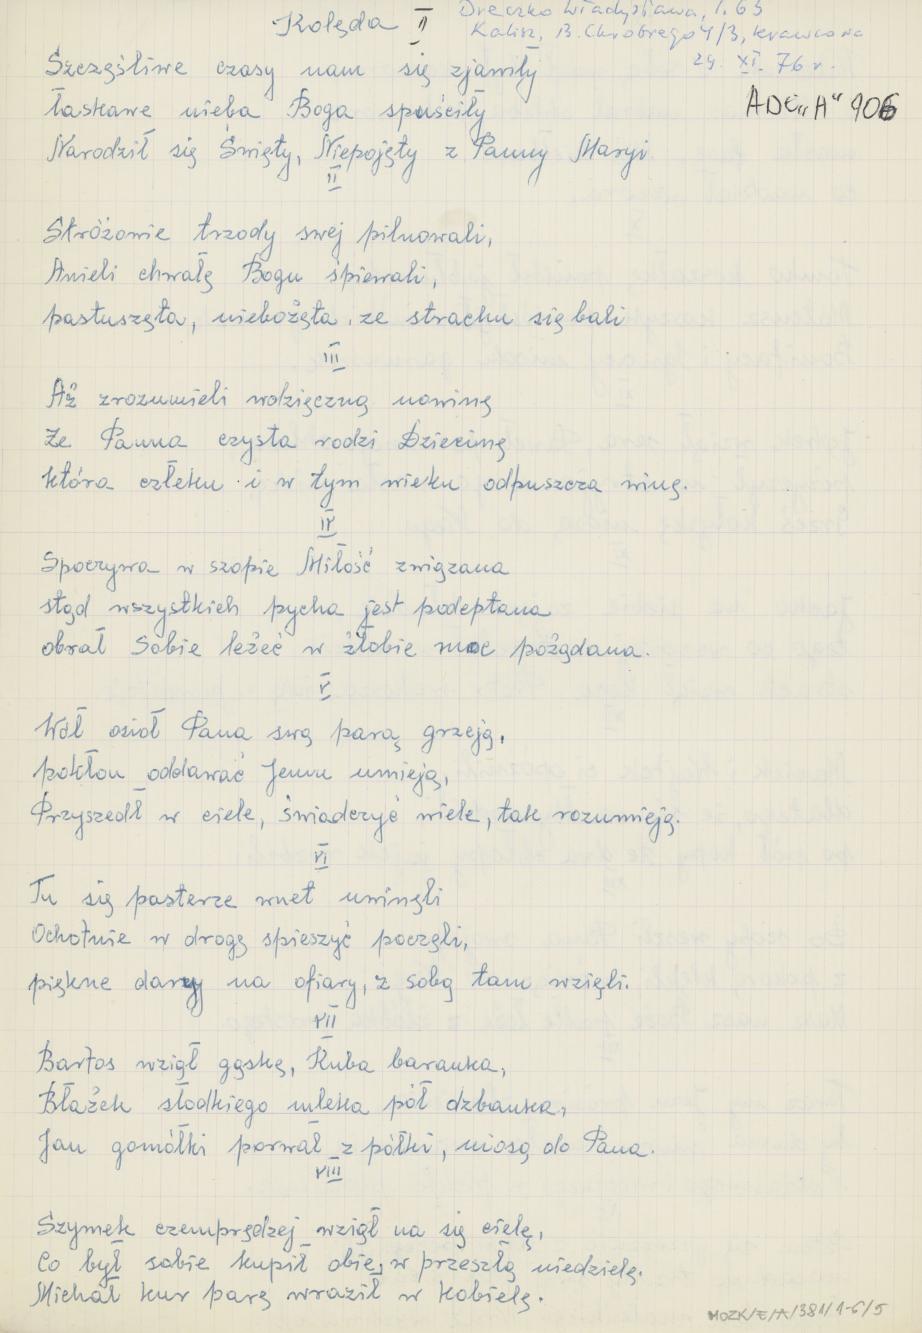 Kolęda II
Dreczko Władysława, l. 63
Kalisz, B. Chrobrego 4/3, krawcowa
29. XI. 76 r.
ADE „A" 906
Szczęśliwe czasy nam się zjawiły
łaskawe nieba Boga spuściły
Narodził się Święty, Niepojęty z Panny Maryi
II
Stróżowie trzody swej pilnowali,
Anieli chwałę Bogu śpiewali,
pastuszęta, niebożęta, ze strachu się bali
III
Aż zrozumieli wdzięczną nowinę
Że Panna czysta rodzi Dziecinę
która człeku i w tym wieku odpuszcza winę.
IV
Spoczywa w szopie Miłość związana
stąd wszystkich pycha jest podeptana
obrał Sobie leżeć w żłobie moc pożądana.
V
Wół osioł Pana swą parą grzeją,
pokłon oddawać Jemu umieją,
Przyszedł w ciele, świadczyć wiele, tak rozumieją.
VI
Tu się pasterze wnet uwinęli
Ochotnie w drogę spieszyć poczęli,
piękne dary na ofiary, z sobą tam wzięli.
VII
Bartos wziął gąskę, Kuba baranka,
Błażek słodkiego mleka pół dzbanka,
Jan gomółki porwał z półki, niosą do Pana.
VIII
Szymek czemprędzej wziął na się cielę,
Co był sobie kupił obie, w przeszłą niedzielę.
Michał kur parę wraził w kobielę.
MOZK/E/A/381/1-6/5